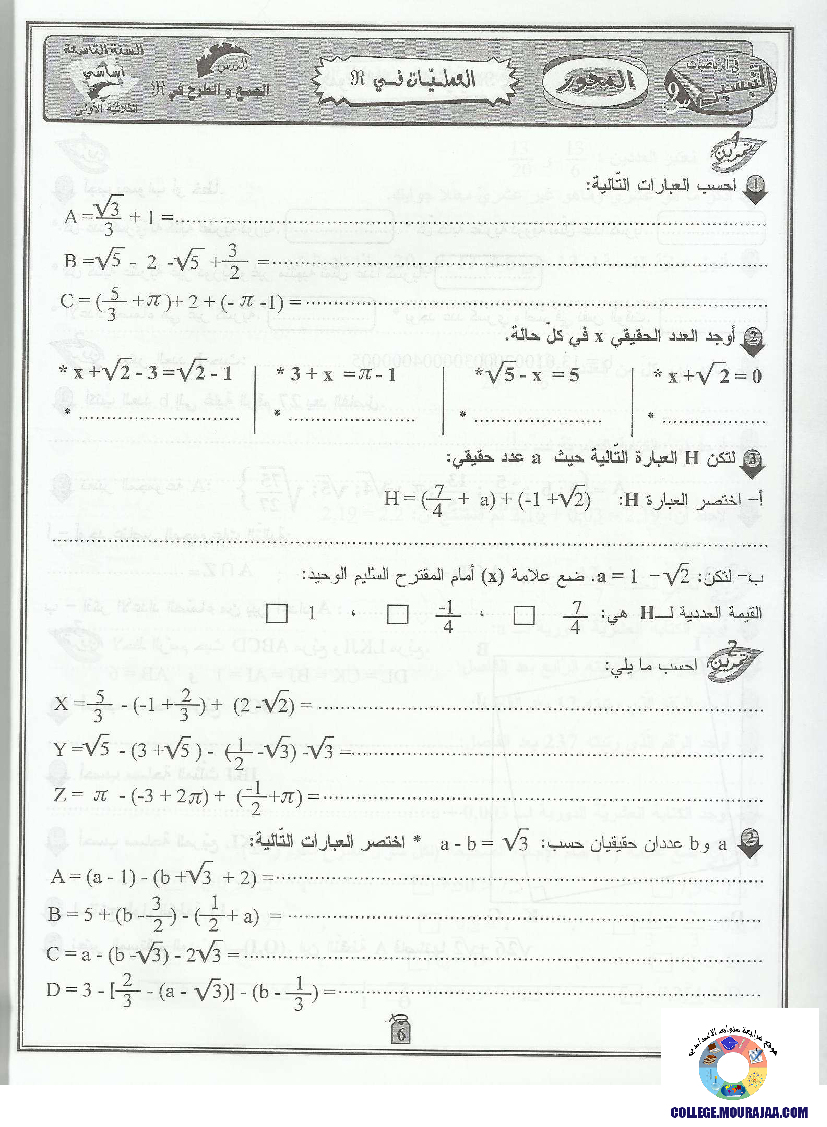 السنة التاسعة
أساسي
الثلاثية الأولى
الدرس
الجمع و الطرح في ℜ
العمليّات في ℜ
المحور
في الرياضيات
التيسير
9
تمرين 1
1 احسب العبارات التّالية:
A = √3/3 + 1 = ........
B = √5 - 2 - √5 + 3/2 = ........
C = (5/3 + π) + 2 + (- π -1) = ........
2 أوجد العدد الحقيقي x في كلّ حالة.
* x + √2 - 3 = √2 - 1 | * 3 + x = π - 1 | * √5 - x = 5 | * x + √2 = 0
* ........ * ........ * ........ * ........
3 لتكن H العبارة التّالية حيث a عدد حقيقي:
أ- اختصر العبارة H: H = (7/4 + a) + (-1 + √2)
........
ب- لتكن: a = 1 - √2. ضع علامة (x) أمام المقترح السليم الوحيد:
القيمة العددية لـ H هي: 7/4 □ ، -1/4 □ ، 1 □
تمرين 2
احسب ما يلي:
X = 5/3 - (-1 + 2/3) + (2 - √2) = ........
Y = √5 - (3 + √5) - (1/2 - √3) - √3 = ........
Z = π - (-3 + 2π) + (-1/2 + π) = ........
2 a و b عددان حقيقيان حسب: a - b = √3 * اختصر العبارات التّالية:
A = (a - 1) - (b + √3 + 2) = ........
B = 5 + (b - 3/2) - (1/2 + a) = ........
C = a - (b - √3) - 2√3 = ........
D = 3 - [2/3 - (a - √3)] - (b - 1/3) = ........
6
موقع مراجعة
COLLEGE.MOURAJAA.COM